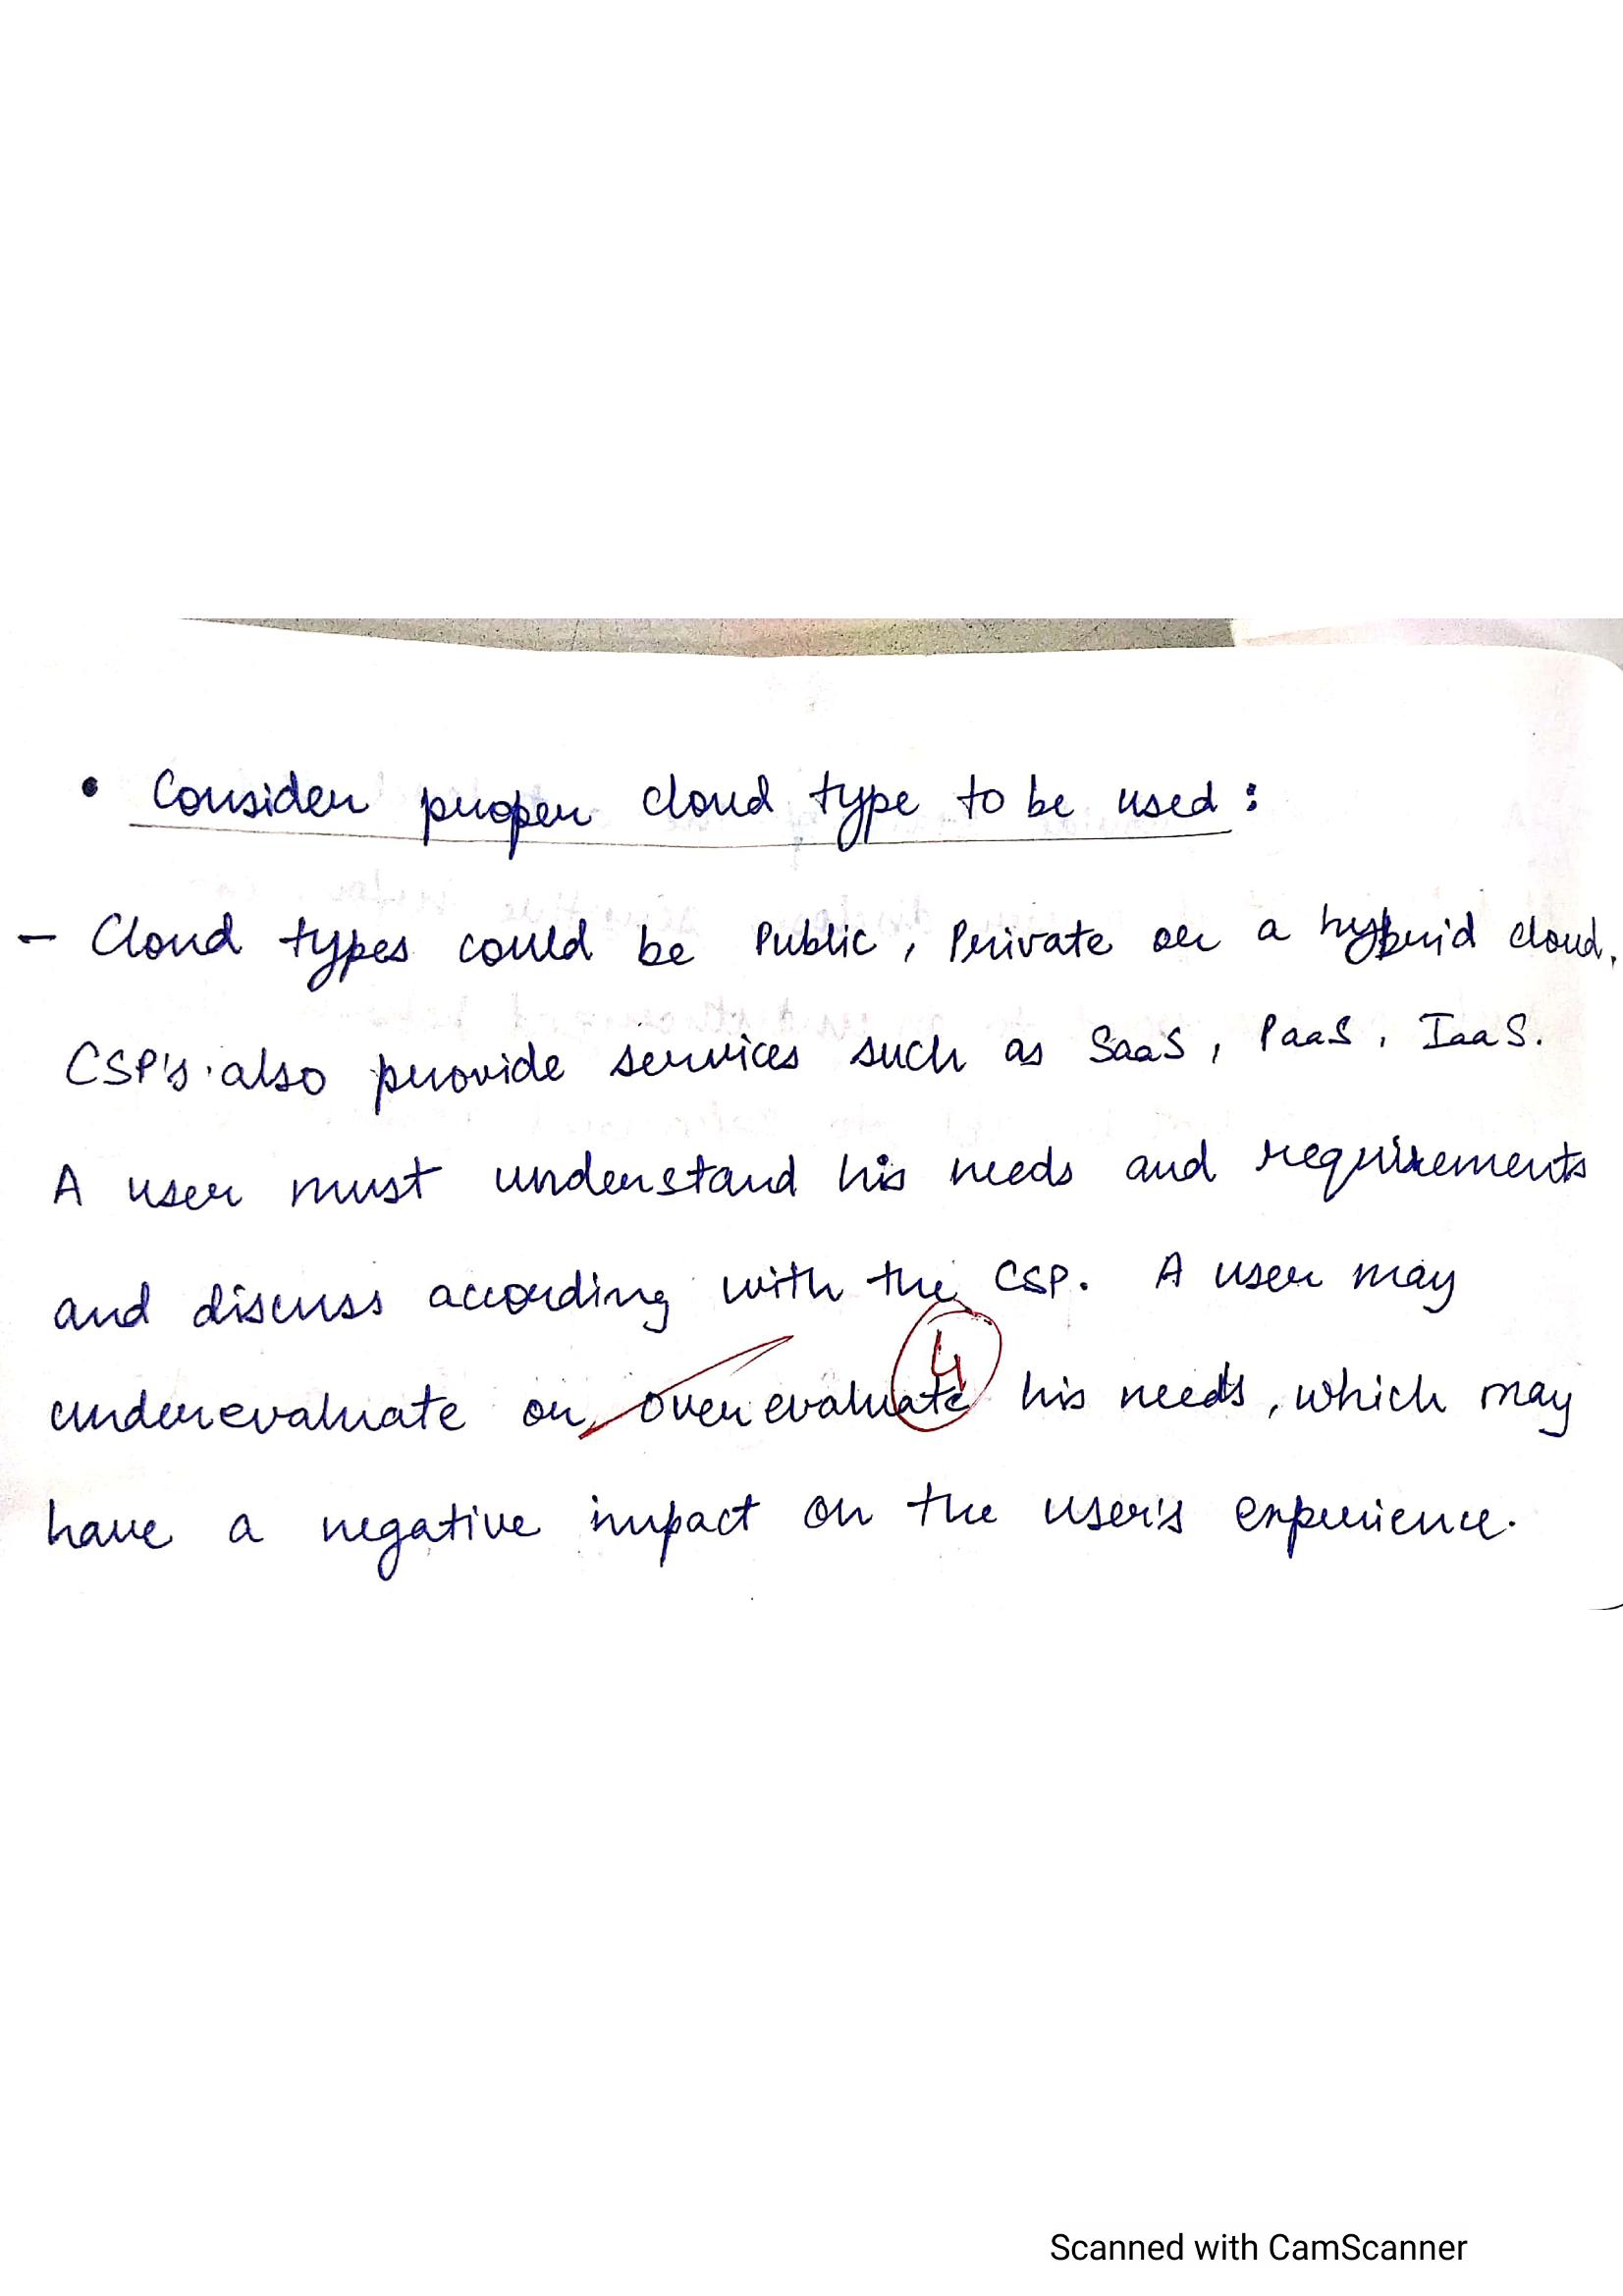 • Consider proper cloud type to be used :
- Cloud types could be Public, Private or a hybrid cloud.
CSP's also provide services such as SaaS, PaaS, IaaS.
A user must understand his needs and requirements
and discuss according with the CSP. A user may
4
underevaluate or overevaluate his needs, which may
have a negative impact on the user's experience.
Scanned with CamScanner